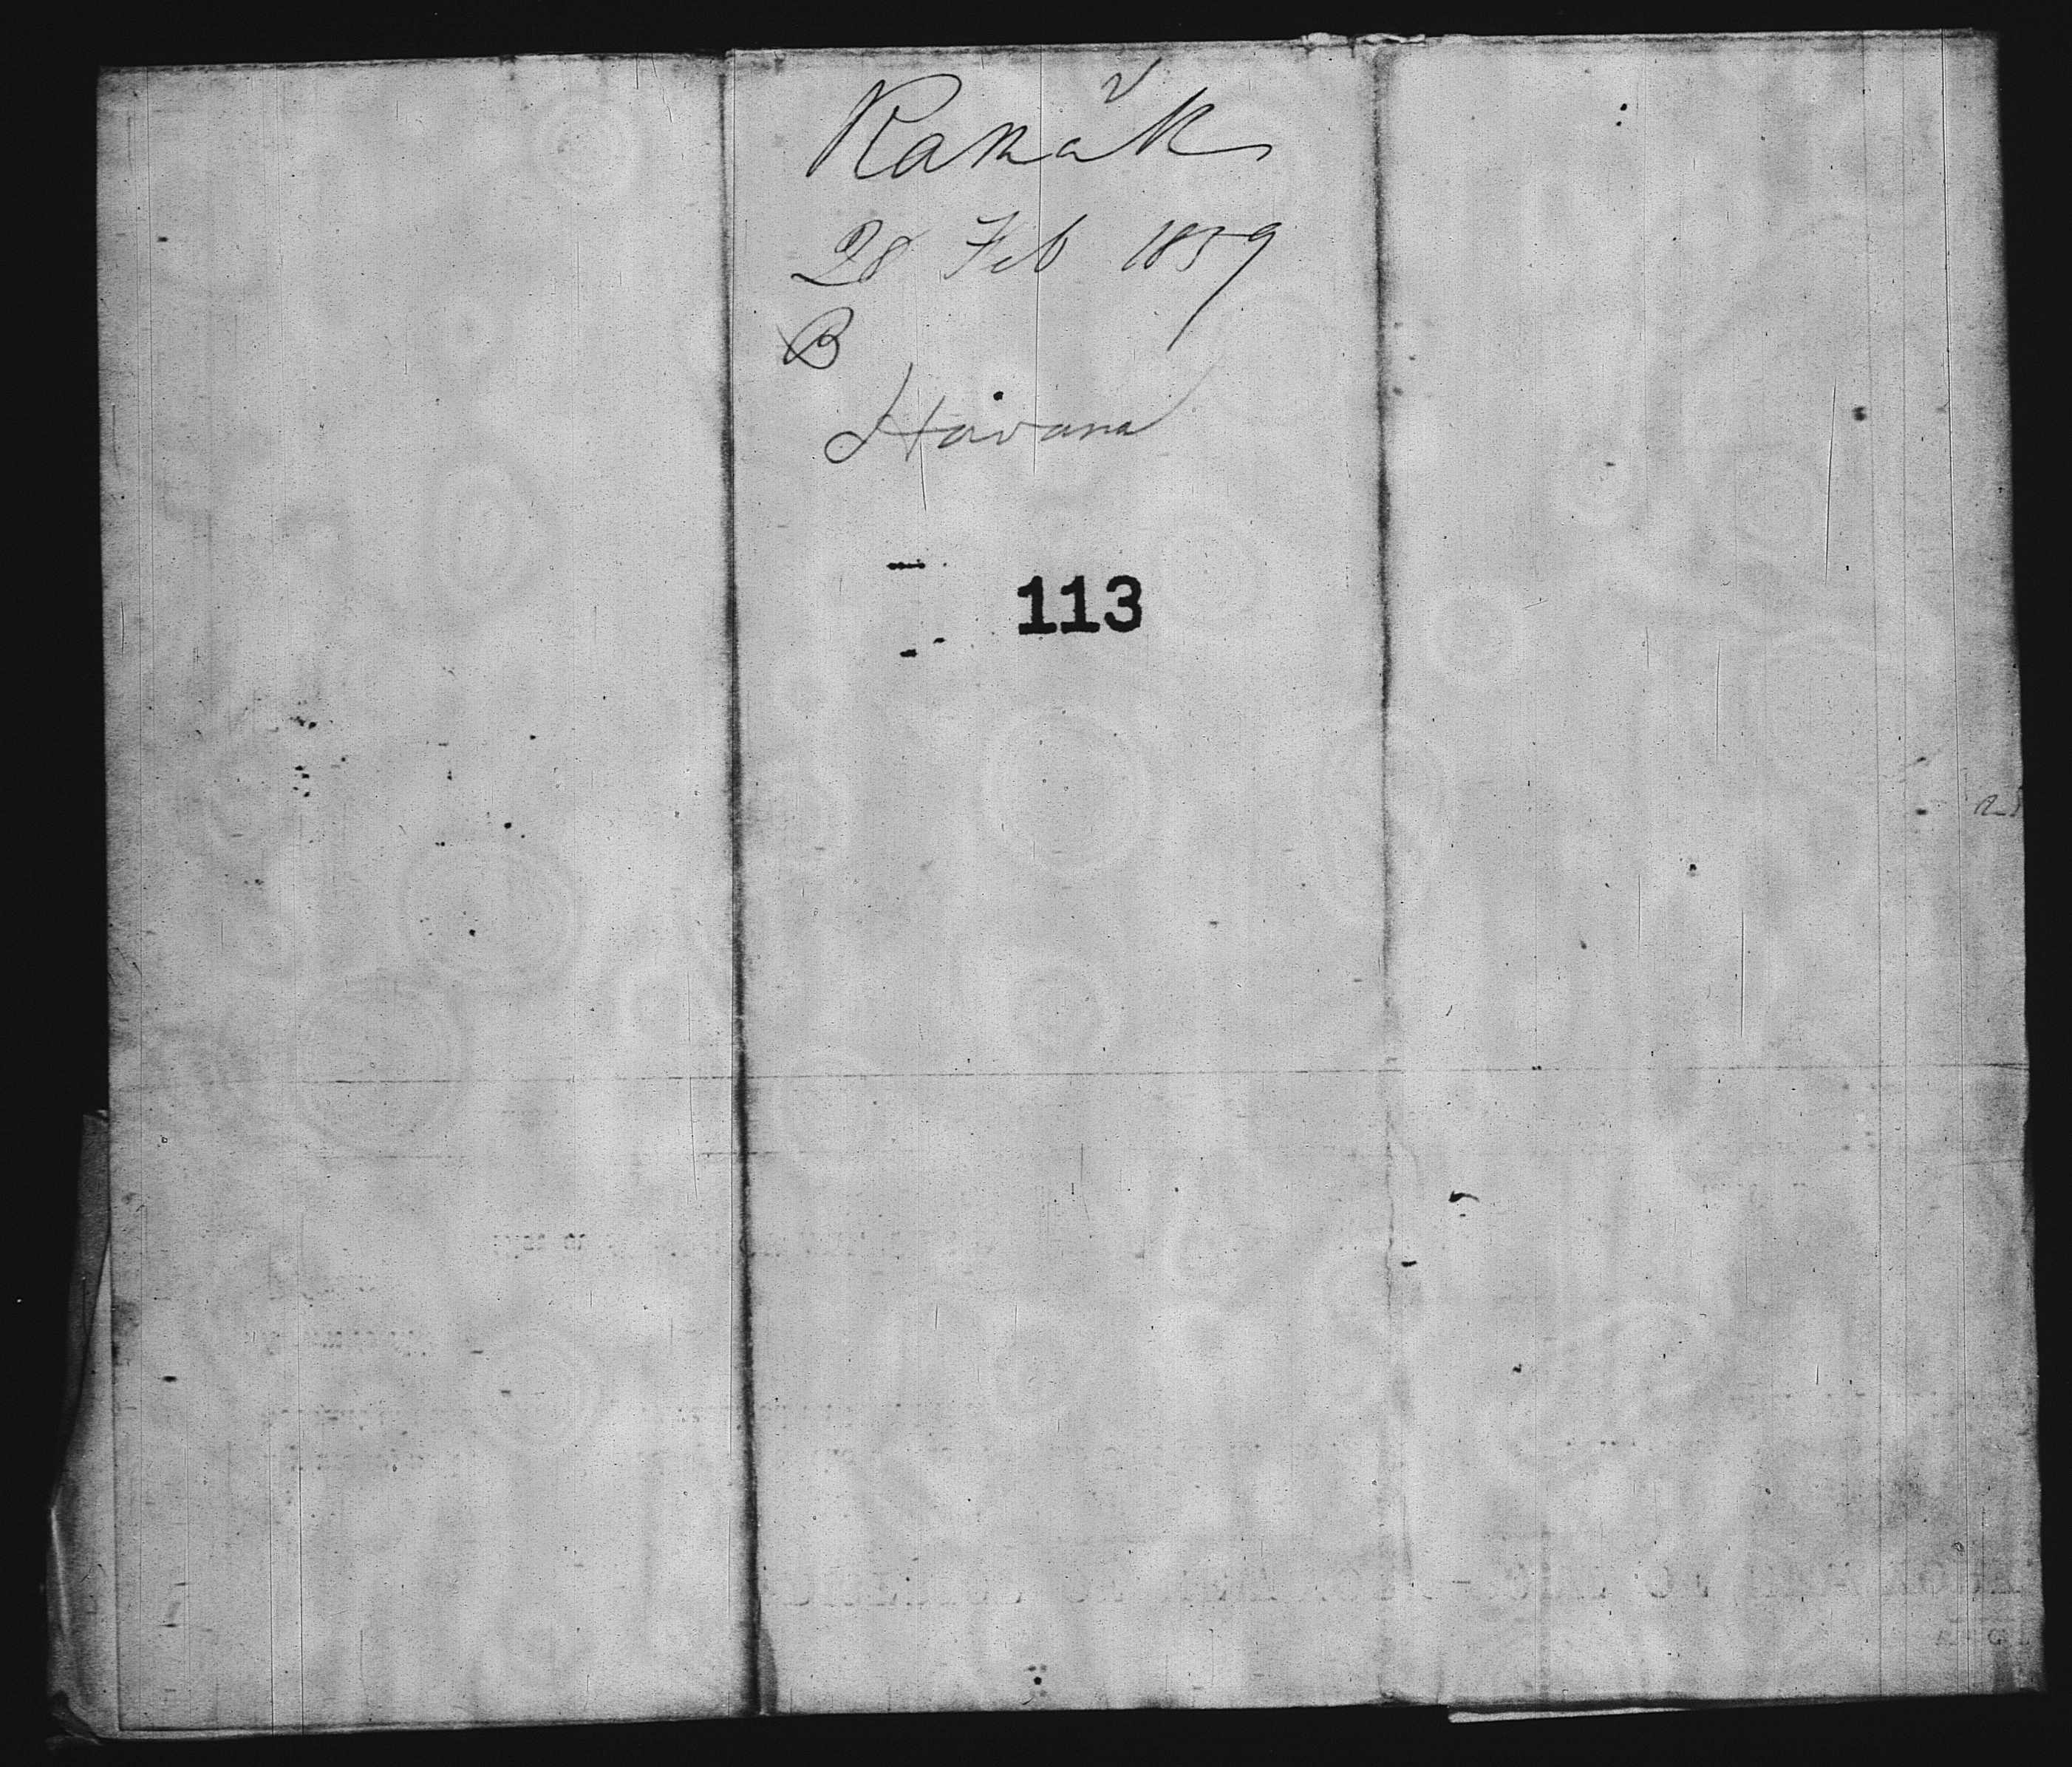 Ranak
28 Feb 1859
B
Havana
113